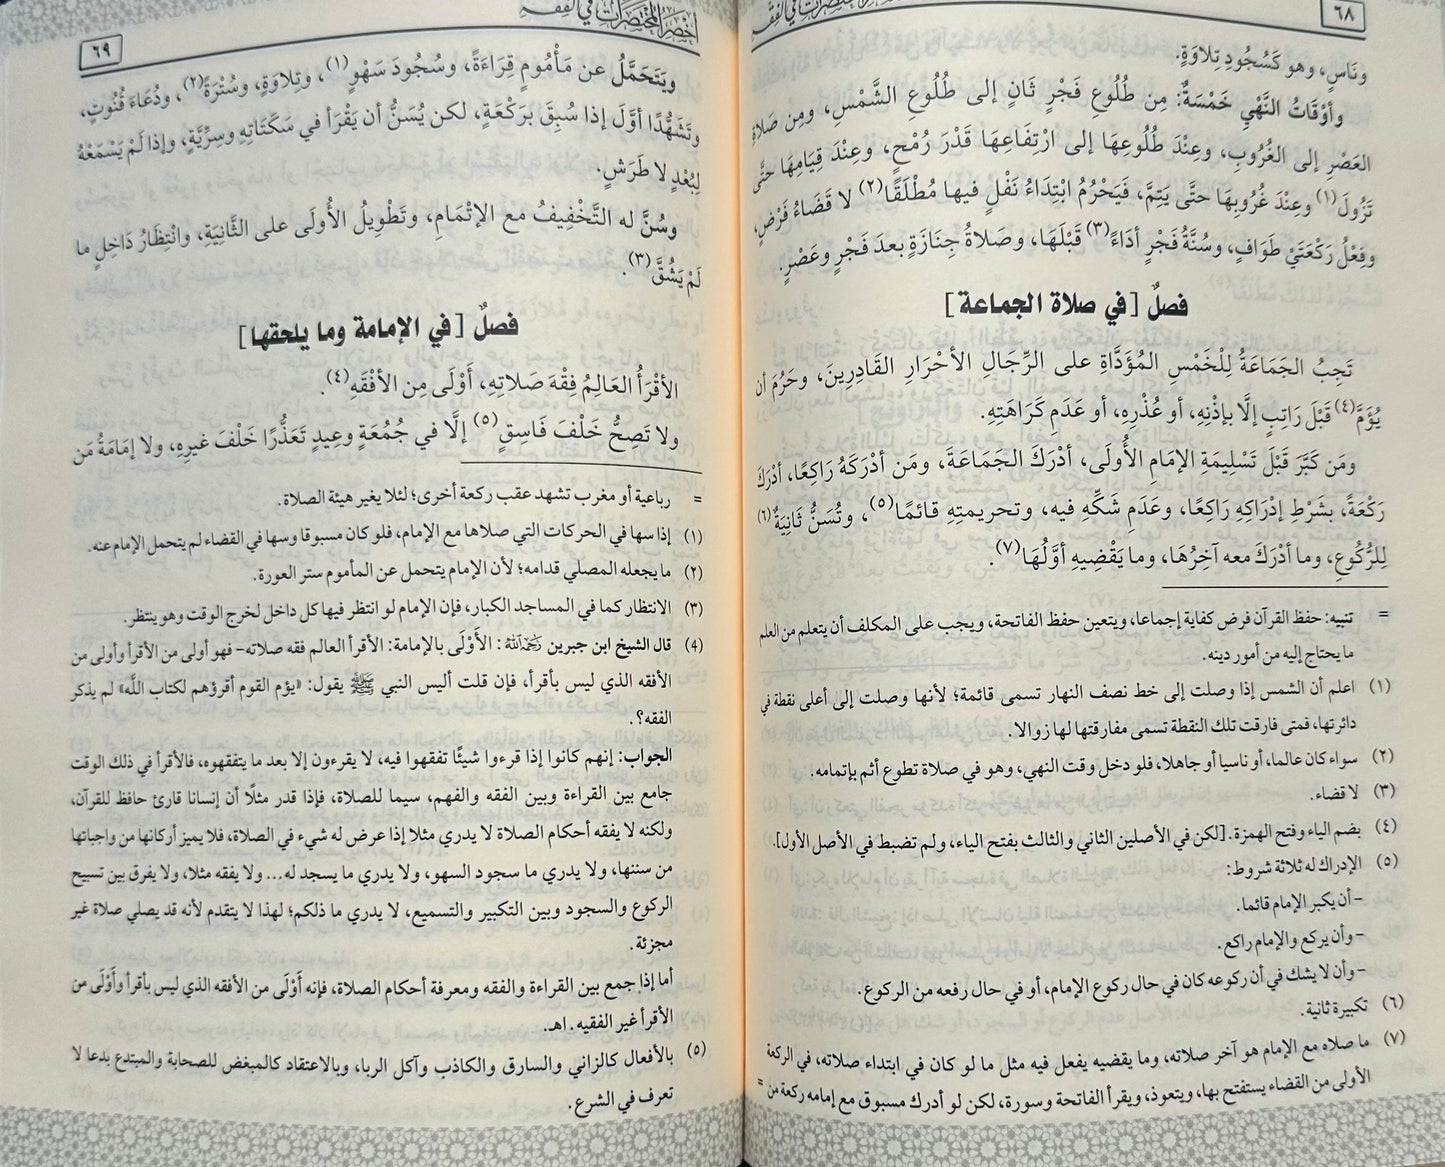 ٦٨
ونَاسٍ، وهو كَسُجُودِ تِلاوَةٍ.
وأوْقَاتُ النَّهْيِ خَمْسَةٌ: مِن طُلُوعِ فَجْرٍ ثَانٍ إلى طُلُوعِ الشَّمْسِ، ومِن صَلاةِ
العَصْرِ إلى الغُرُوبِ، وعِنْدَ طُلُوعِهَا إلى ارْتِفَاعِهَا قَدْرَ رُمْحٍ، وعِنْدَ قِيَامِهَا حتَّى
تَزُولَ(١) وعِنْدَ غُرُوبِهَا حتَّى يَتِمَّ، فَيَحْرُمُ ابْتِدَاءُ نَفْلٍ فيها مُطْلَقًا(٢) لا قَضَاءُ فَرْضٍ،
وفِعْلُ رَكْعَتَيْ طَوَافٍ، وسُنَّةُ فَجْرٍ أدَاءً(٣) قَبْلَهَا، وصَلاةُ جِنَازَةٍ بعدَ فَجْرٍ وعَصْرٍ.
فصلٌ [في صلاة الجماعة]
تَجِبُ الجَمَاعَةُ لِلْخَمْسِ المُؤَدَّاةِ على الرِّجَالِ الأحْرَارِ القَادِرِينَ، وحَرُمَ أن
يُؤَمَّ(٤) قَبْلَ رَاتِبٍ إلَّا بإذْنِهِ، أو عُذْرِهِ، أو عَدَمِ كَرَاهَتِهِ.
ومَن كَبَّرَ قَبْلَ تَسْلِيمَةِ الإمَامِ الأُولَى، أدْرَكَ الجَمَاعَةَ، ومَن أدْرَكَهُ رَاكِعًا، أدْرَكَ
رَكْعَةً، بشَرْطِ إدْرَاكِهِ رَاكِعًا، وعَدَمِ شَكِّهِ فيه، وتحريمتِهِ قائمًا(٥)، وتُسَنُّ ثَانِيَةٌ(٦)
لِلرُّكُوعِ، وما أدْرَكَ معه آخِرُهَا، وما يَقْضِيهِ أوَّلُهَا(٧).
= تنبيه: حفظ القرآن فرض كفاية إجماعا، ويتعين حفظ الفاتحة، ويجب على المكلف أن يتعلم من العلم
ما يحتاج إليه من أمور دينه.
(١) اعلم أن الشمس إذا وصلت إلى خط نصف النهار تسمى قائمة؛ لأنها وصلت إلى أعلى نقطة في
دائرتها، فمتى فارقت تلك النقطة تسمى مفارقتها لها زوالا.
(٢) سواء كان عالما، أو ناسيا أو جاهلا، فلو دخل وقت النهي، وهو في صلاة تطوع أثم بإتمامه.
(٣) لا قضاء.
(٤) بضم الياء وفتح الهمزة. [لكن في الأصلين الثاني والثالث بفتح الياء، ولم تضبط في الأصل الأول].
(٥) الإدراك له ثلاثة شروط:
- أن يكبر الإمام قائما.
- وأن يركع والإمام راكع.
- وأن لا يشك في أن ركوعه كان في حال ركوع الإمام، أو في حال رفعه من الركوع.
(٦) تكبيرة ثانية.
(٧) ما صلاه مع الإمام هو آخر صلاته، وما يقضيه يفعل فيه مثل ما لو كان في ابتداء صلاته، في الركعة
الأولى من القضاء يستفتح بها، ويتعوذ، ويقرأ الفاتحة وسورة، لكن لو أدرك مسبوق مع إمامه ركعة من =
أخصر المختصرات في الفقه
٦٩
ويَتَحَمَّلُ عن مَأْمُومٍ قِرَاءَةً، وسُجُودَ سَهْوٍ(١)، وتِلاوَةٍ، وسُتْرَةً(٢)، ودُعَاءَ قُنُوتٍ،
وتَشَهُّدًا أوَّلَ إذا سُبِقَ بَرَكْعَةٍ، لكن يُسَنُّ أن يَقْرَأ في سَكَتَاتِهِ وسِرِّيَّةٍ، وإذا لَمْ يَسْمَعْهُ
لِبُعْدٍ لا طَرَشٍ.
وسُنَّ له التَّخْفِيفُ مع الإتْمَامِ، وتَطْوِيلُ الأُولَى على الثَّانِيَةِ، وانْتِظَارُ دَاخِلٍ ما
لَمْ يَشُقَّ(٣).
فصلٌ [في الإمامة وما يلحقها]
الأقْرَأُ العَالِمُ فِقْهَ صَلاتِهِ، أَوْلَى مِن الأفْقَهِ(٤).
ولا تَصِحُّ خَلْفَ فَاسِقٍ(٥) إلَّا في جُمُعَةٍ وعِيدٍ تَعَذَّرَا خَلْفَ غيرِهِ، ولا إمَامَةُ مَن
= رباعية أو مغرب تشهد عقب ركعة أخرى؛ لئلا يغير هيئة الصلاة.
(١) إذا سها في الحركات التي صلاها مع الإمام، فلو كان مسبوقا وسها في القضاء لم يتحمل الإمام عنه.
(٢) ما يجعله المصلي قدامه؛ لأن الإمام يتحمل عن المأموم ستر العورة.
(٣) الانتظار كما في المساجد الكبار، فإن الإمام لو انتظر فيها كل داخل لخرج الوقت وهو ينتظر.
(٤) قال الشيخ ابن جبرين رحمه الله: الأَوْلَى بالإمامة: الأقرأ العالم فقه صلاته- فهو أولى من الأقرأ وأولى من
الأفقه الذي ليس بأقرأ، فإن قلت أليس النبي ﷺ يقول: «يؤم القوم أقرؤهم لكتاب اللَّه» لم يذكر
الفقه؟.
الجواب: إنهم كانوا إذا قرءوا شيئًا تفقهوا فيه، لا يقرءون إلا بعد ما يتفقهوه، فالأقرأ في ذلك الوقت
جامع بين القراءة وبين الفقه والفهم، سيما للصلاة، فإذا قدر مثلًا أن إنسانا قارئ حافظ للقرآن،
ولكنه لا يفقه أحكام الصلاة لا يدري مثلا إذا عرض له شيء في الصلاة، فلا يميز أركانها من واجباتها
من سننها، ولا يدري ما سجود السهو، ولا يدري ما يسجد له... ولا يفقه مثلا، ولا يفرق بين تسبيح
الركوع والسجود وبين التكبير والتسميع، لا يدري ما ذلكم؛ لهذا لا يتقدم لأنه قد يصلي صلاة غير
مجزئة.
أما إذا جمع بين القراءة والفقه ومعرفة أحكام الصلاة، فإنه أَوْلَى من الأفقه الذي ليس بأقرأ وأَوْلَى من
الأقرأ غير الفقيه. اهـ.
(٥) بالأفعال كالزاني والسارق والكاذب وآكل الربا، وبالاعتقاد كالمبغض للصحابة والمبتدع بدعا لا
تعرف في الشرع.